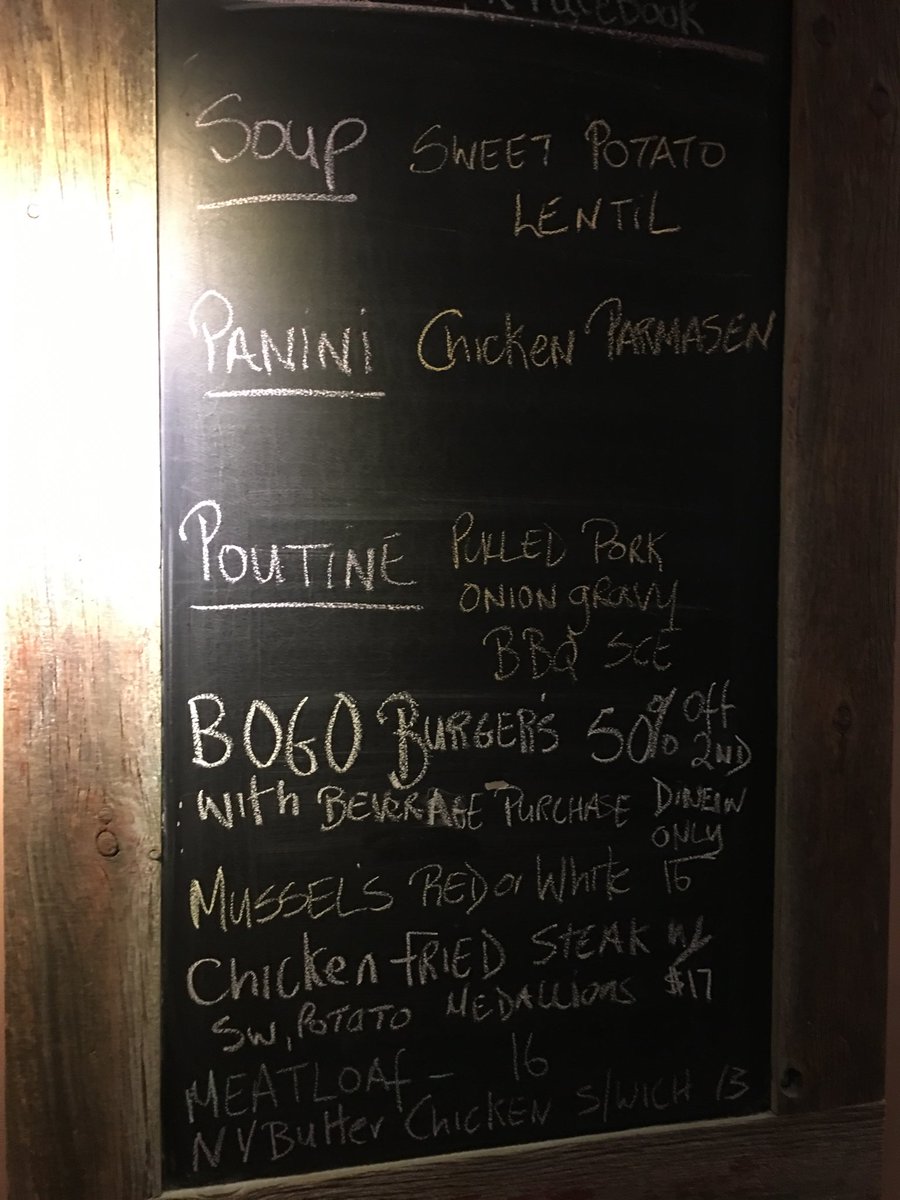 Facebook
Soup SWEET POTATO
LENTIL
PANINI Chicken PARMASEN
POUTINE PULLED PORK
ONION gRAVY
BBQ SCE
BOGO BURGER'S 50% Off
2ND
with BEVERAGE PURCHASE DINEIN
ONLY
MUSSEL'S RED or White 16
Chicken FRIED STEAK w/
SW, POTATO MEDALLIONS $17
MEATLOAf - 16
NY Butter Chicken S/WICH 13